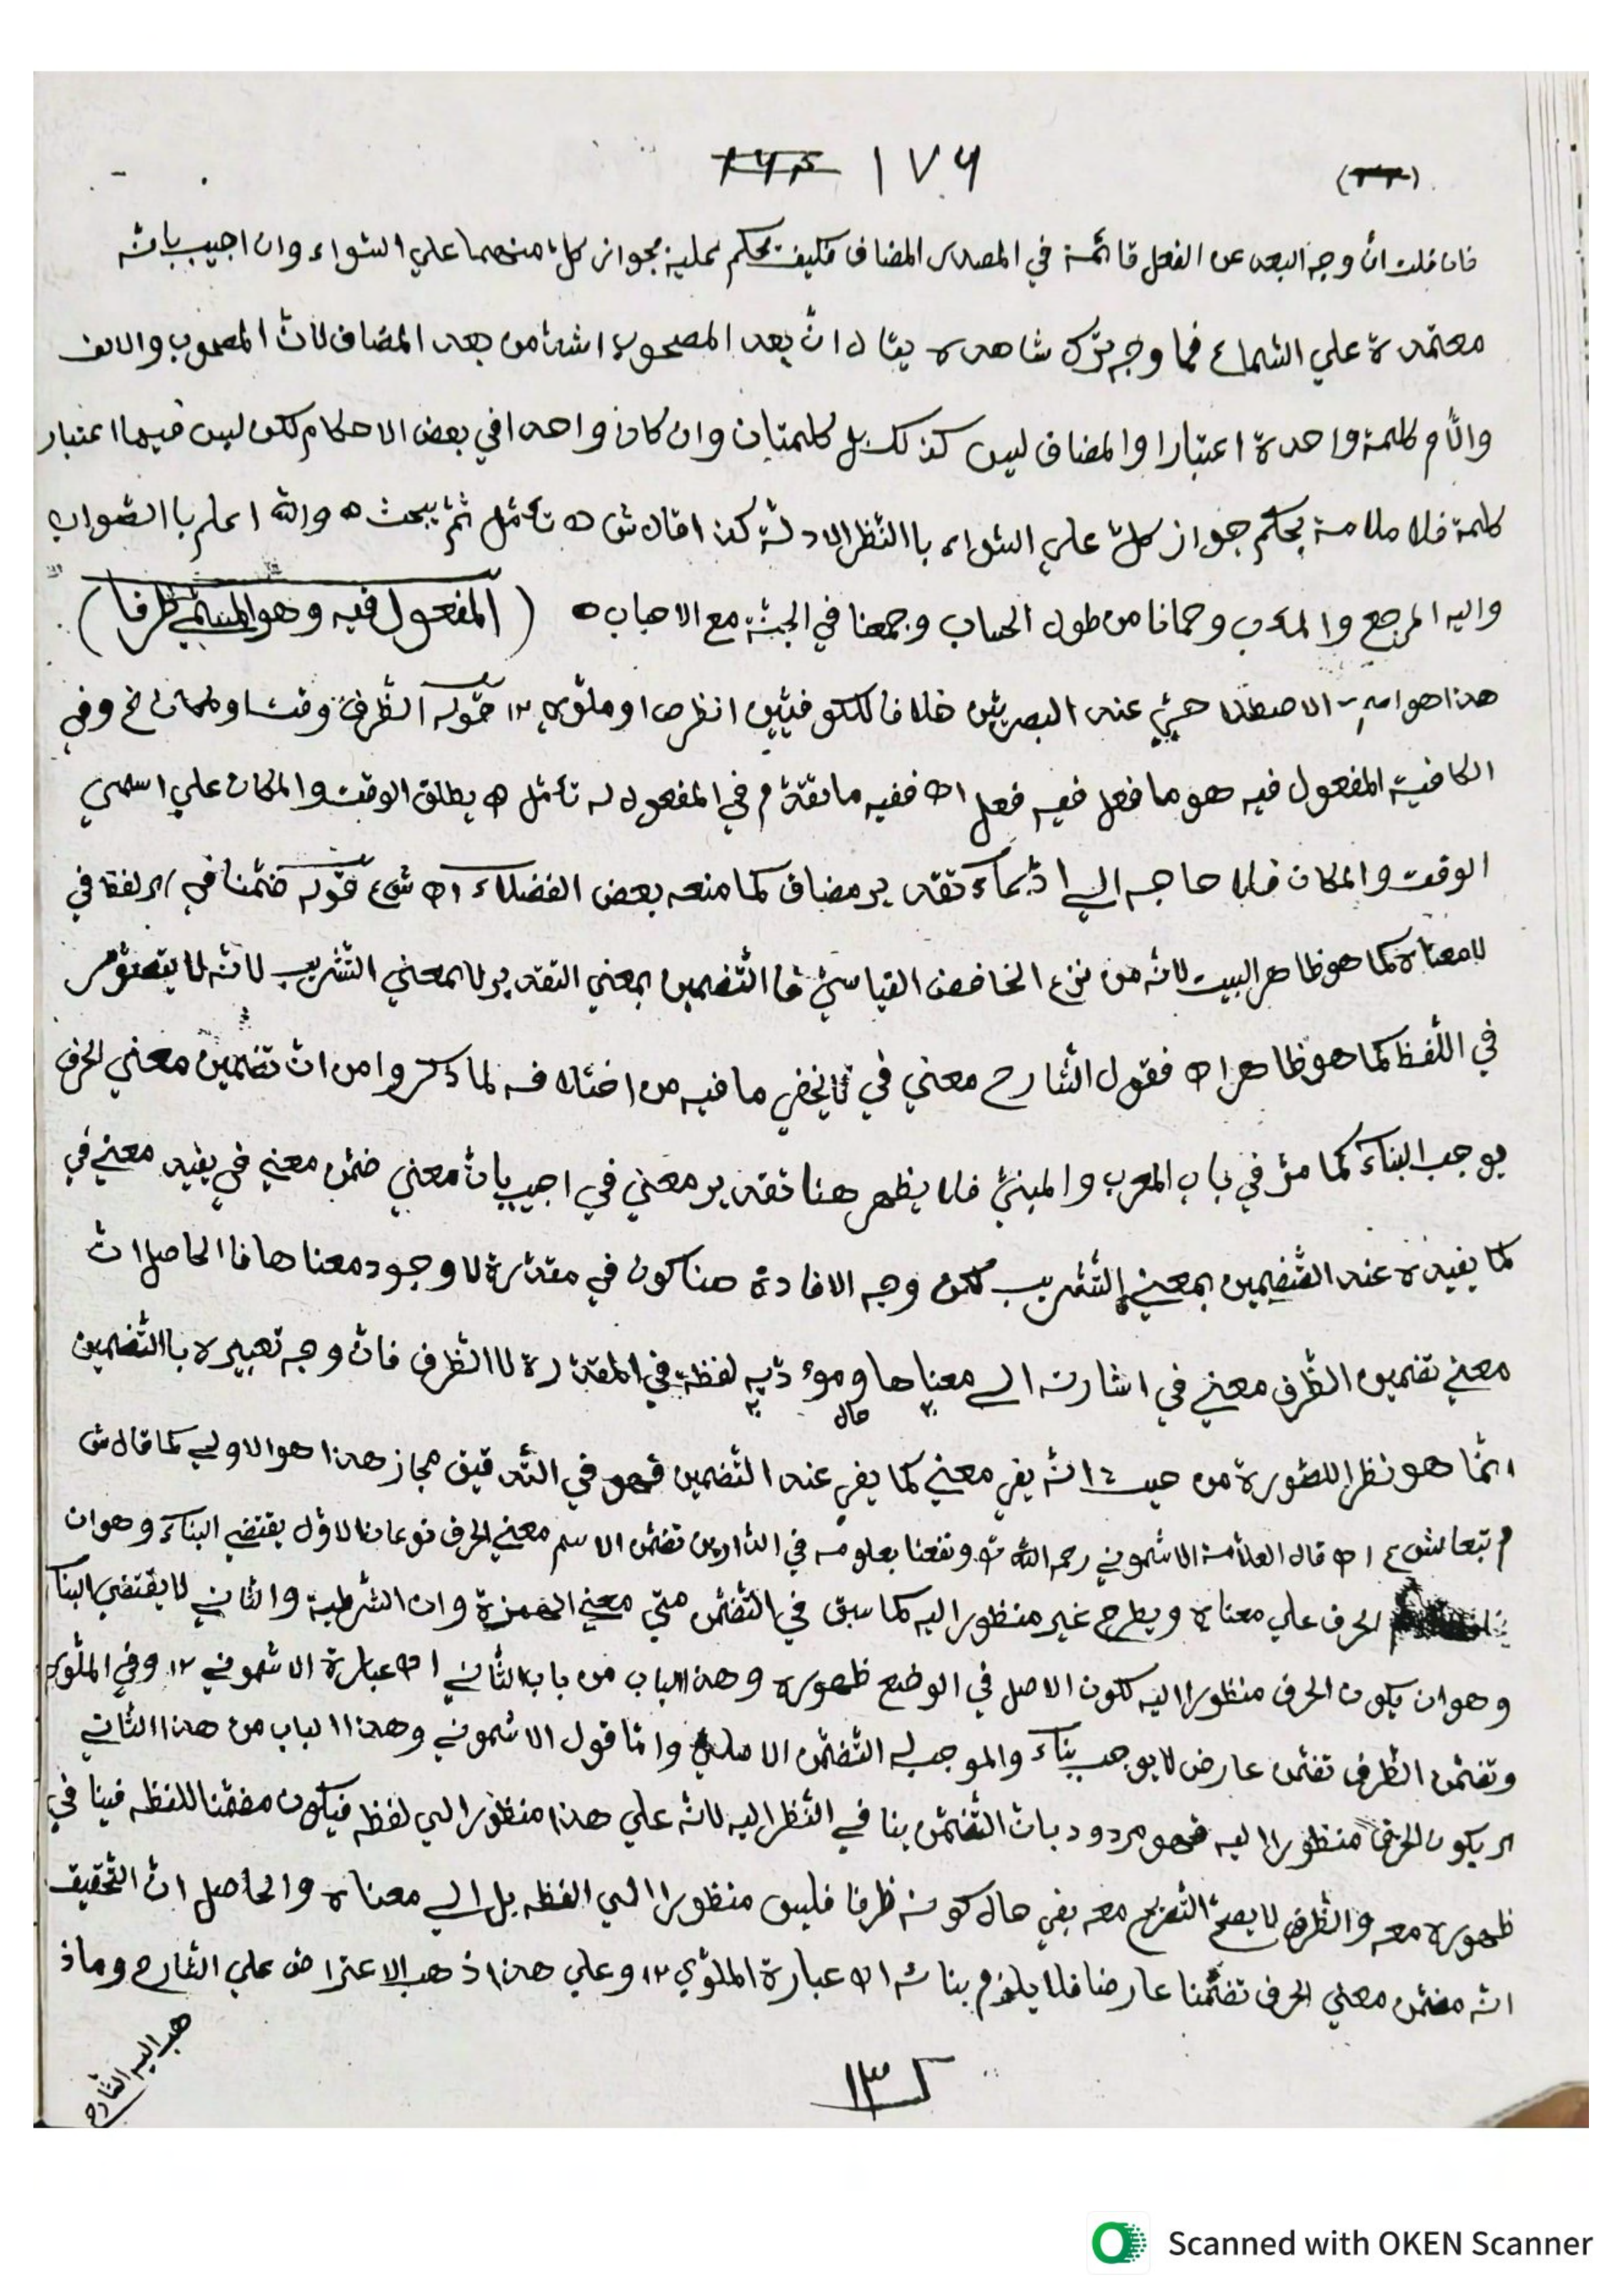 ١٧٦
فان قلت ان وجه البعد عن الفعل قائمة في المصدر المضاف فكيف يحكم عليه بجواز كل منهما علي السّواء وان اجيب بانّه
معتمدة علي السّماع فما وجه ترك شاهده يقال انّ بعد المصحوب اشد من بعد المضاف لانّ المصحوب والالف
والّام كلمة واحدة اعتبارا والمضاف ليس كذلك بل كلمتان وان كانا واحدا في بعض الاحكام لكن ليس فيها اعتبار
كلمة فلا ملامة بحكم جواز كلّ علي السّواء باالنّظر الادلّة كذا قال ش اه تأمّل ثمّ يبحث ه والله اعلم باالصّواب
واليه المرجع والمآب وحمانا من طول الحساب وجمعنا في الجنّة مع الاحباب ه ( المفعول فيه وهو المسمّي ظرفا )
هذا هو الاصطلاحيّ عند البصريّين خلافا للكوفيّين انظر ص او ملّوي ١٢ قوله الظّرف وقت او مكان الخ وفي
الكافية المفعول فيه هو ما فعل فيه فعل اه ففيه ما تقدّم في المفعول له تأمّل اه يطلق الوقت والمكان علي اسمي
الوقت والمكان فلا حاجه الي ادّعاء تقدير مضاف كما منعه بعض الفضلاء اه ش ع قوله ضمّنا في اي لفظا في
لا معناه كما هو ظاهر البيت لانّه من نزع الخافض القياسيّ فاالتّضمين بمعني التقدير لا بمعني التّشريب لانّه لا يتصوّر
في اللّفظ كما هو ظاهر اه فقول الشّارح معني في لا يخفي ما فيه من اختلافه لما ذكروا من انّ تضمين معني الحرف
يوجب البناء كما مرّ في باب المعرب والمبنيّ فلا يظهر هنا تقدير معني في اجيب بانّ معني ضمّن معني في يفيد معني في
كما يفيده عند التّضمين بمعني التّشريب لكن وجه الافادة هنا كون في مقدّرة لا وجود معناها فاالحاصل انّ
معني تضمين الظّرف معني في اشارته الي معناها ومؤدّيه لفظة في المقدّرة لا الظّرف فانّ وجه تعبيره باالتّضمين
حال
انّما هو نظرا للصّورة من حيث انّه يفي معني كما يفي عند التّضمين فهو في التّدقيق مجاز هذا هو الاولي كما قال ش
م تبعا ش ع اه قال العلّامة الاشموني رحمه الله ونفعنا بعلومه في الدّارين تضمّن الاسم معني الحرف نوعان الاوّل يقتضي البناء وهو ان
الحرف علي معناه ويطرح غير منظورا اليه كما سبق في التّضمّن متي معني الهمزة وان الشّرطية والثّاني لا يقتضي البنا
وهو ان يكون الحرف منظورا اليه لكون الاصل في الوضع ظهوره وهذا الباب من باب الثّاني اه عبارة الاشموني ١٢ وفي الملّوي
وتضمّن الظّرف تضمّن عارض لا يوجب بناء والموجب له التّضمّن الاصلي وامّا قول الاشموني وهذا الباب من هذا الثّاني
اي يكون الحرف منظورا اليه فهو مردود بانّ التّضمّن ينافي النّظر اليه لانّه علي هذا منظورا الي لفظه فيكون مضمّنا للفظه فينافي
ظهوره معه والظّرف لا يصحّ التّصريح معه بفي حال كونه ظرفا فليس منظورا الي الفظه بل الي معناه والحاصل انّ التّحقيق
انّه مضمّن معني الحرف تضمّنا عارضا فلا يلزم بنائه اه عبارة الملّوي ١٢ وعلي هذا ذهب الاعتراض علي الشّارح وما ذ
هب اليه الشّارح
Scanned with OKEN Scanner